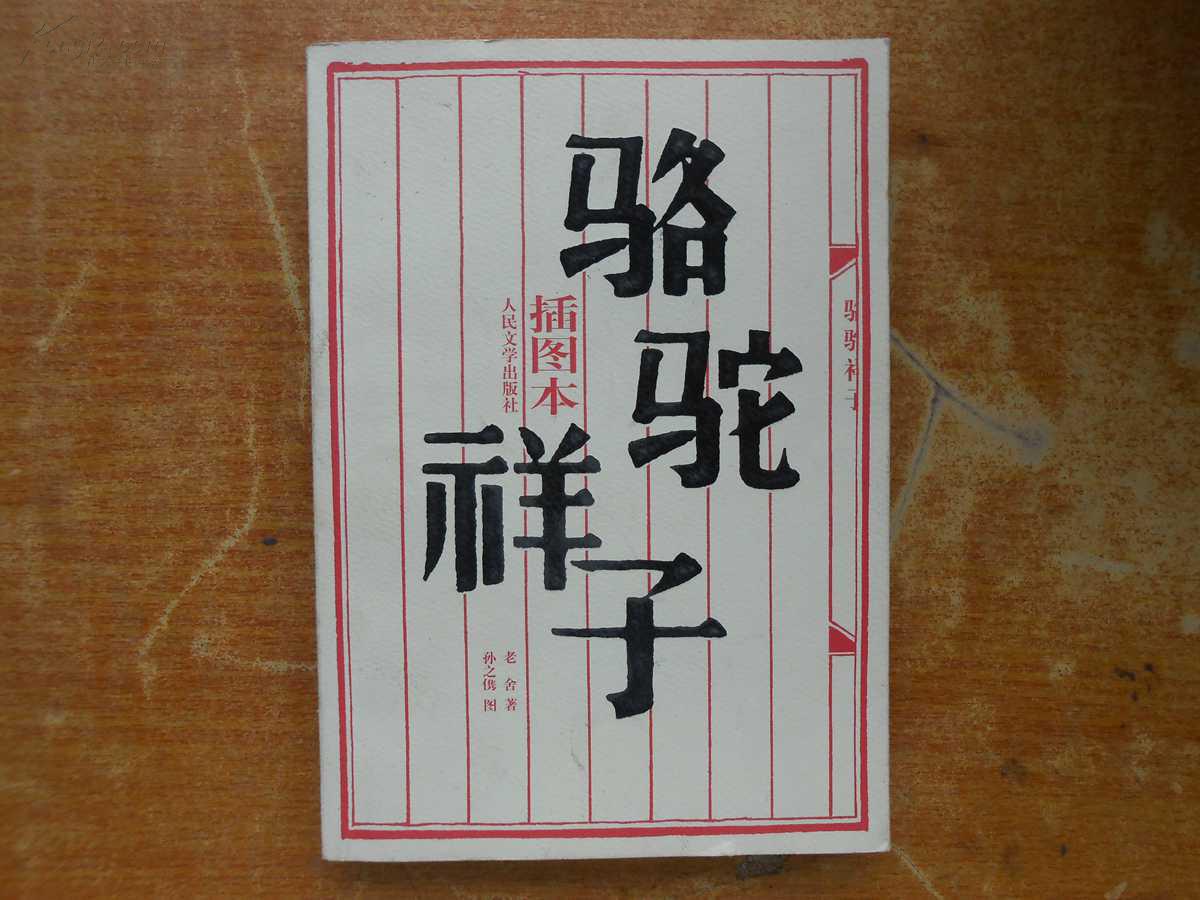 骆驼
祥子
插图本
人民文学出版社
老舍著
孙之儁图
骆驼祥子